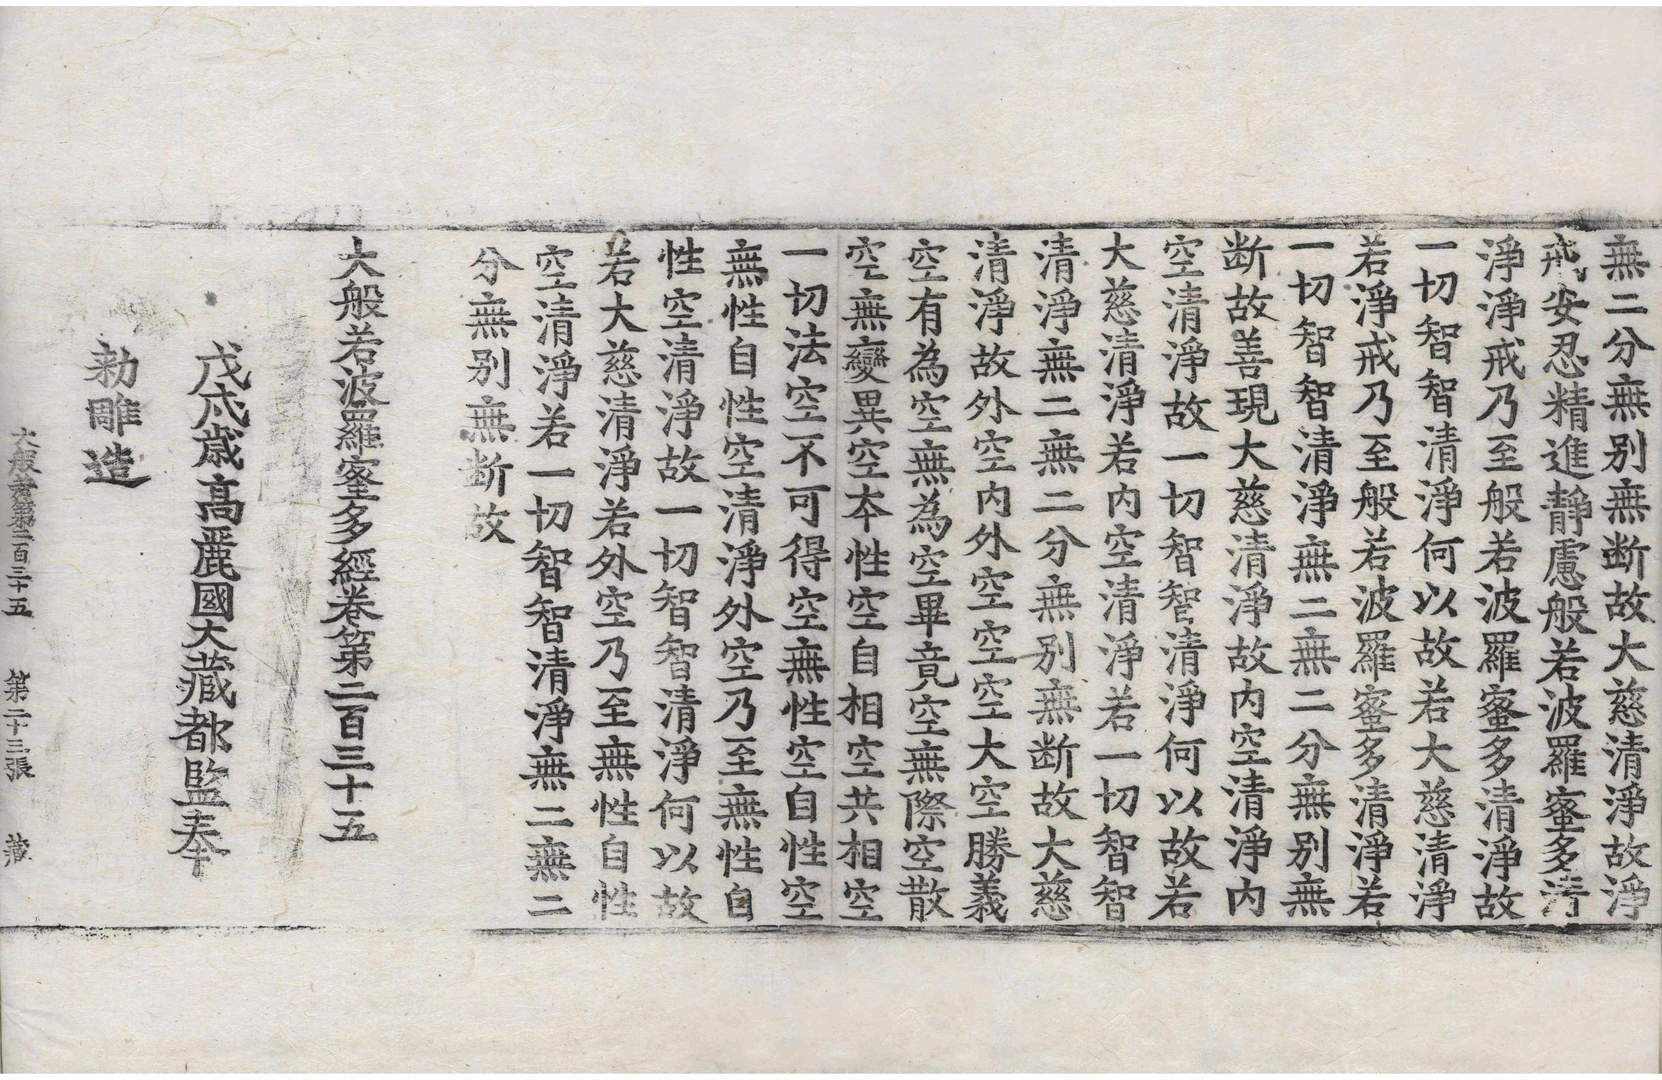 無二分無别無断故大慈清淨故淨
戒安忍精進靜慮般若波羅蜜多清
淨淨戒乃至般若波羅蜜多清淨故
一切智智清淨何以故若大慈清淨
若淨戒乃至般若波羅蜜多清淨若
一切智智清淨無二無二分無别無
断故善現大慈清淨故内空清淨内
空清淨故一切智智清淨何以故若
大慈清淨若内空清淨若一切智智
清淨無二無二分無别無断故大慈
清淨故外空内外空空空大空勝義
空有為空無為空畢竟空無際空散
空無變異空本性空自相空共相空
一切法空不可得空無性空自性空
無性自性空清淨外空乃至無性自
性空清淨故一切智智清淨何以故
若大慈清淨若外空乃至無性自性
空清淨若一切智智清淨無二無二
分無别無断故
大般若波羅蜜多經卷第二百三十五
戊戌歲高麗國大藏都監奉
勑雕造
大般若第二百三十五 第二十三張 藏